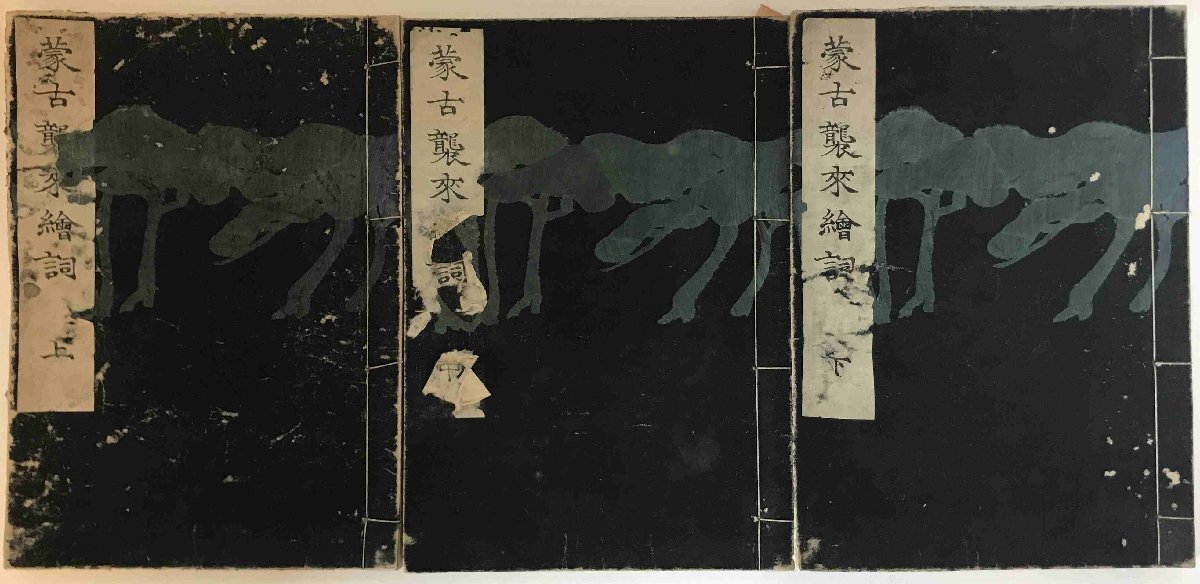 蒙古襲來繪詞 上
蒙古襲來 詞 中
蒙古襲來繪詞 下